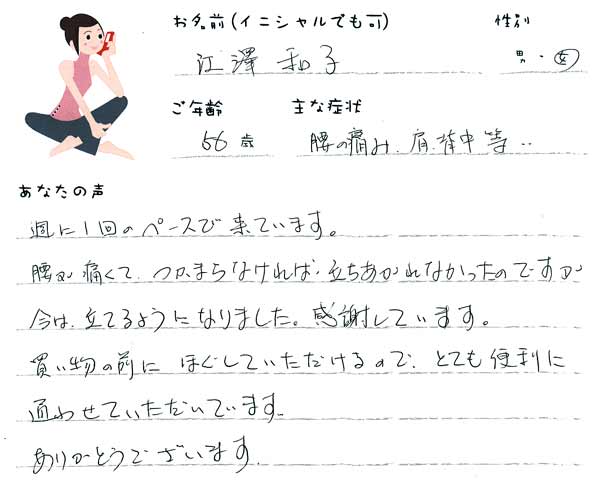 お名前(イニシャルでも可) 性別
江澤 和子 男・女
ご年齢 主な症状
56歳 腰の痛み、肩、背中等‥
あなたの声
週に1回のペースで来ています。
腰が痛くて、つかまらなければ、立ちあがれなかったのですが
今は、立てるようになりました。感謝しています。
買い物の前に ほぐしていただけるので、とても便利に
通わせていただいています。
ありがとうございます。